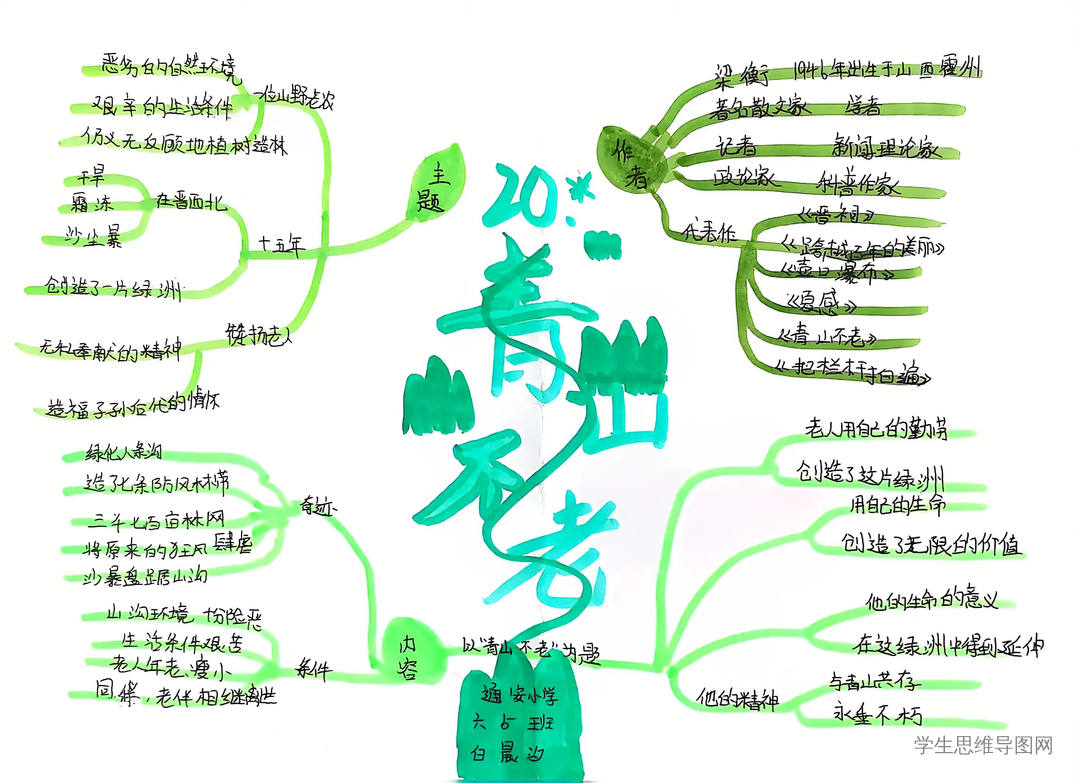 20.*
青山不老
主题
一位山野老农
恶劣的自然环境
艰辛的生活条件
仍义无反顾地植树造林
十五年
在晋西北
干旱
霜冻
沙尘暴
创造了一片绿洲
赞扬老人
无私奉献的精神
造福子孙后代的情怀
作者
梁衡 1946年出生于山西霍州
著名散文家 学者
记者 新闻理论家
政论家 科普作家
代表作
《晋祠》
《跨越百年的美丽》
《壶口瀑布》
《夏感》
《青山不老》
《把栏杆拍遍》
内容
奇迹
绿化八条沟
造了七条防风林带
三千七百亩林网
将原来的狂风肆虐
沙暴盘踞山沟
条件
山沟环境十份险恶
生活条件艰苦
老人年老、瘦小
同伴，老伴相继离世
以"青山不老"为题
老人用自己的勤劳
创造了这片绿洲
用自己的生命
创造了无限的价值
他的生命的意义
在这绿洲中得到延伸
他的精神
与青山共存
永垂不朽
通安小学
六5班
白晨汐
学生思维导图网